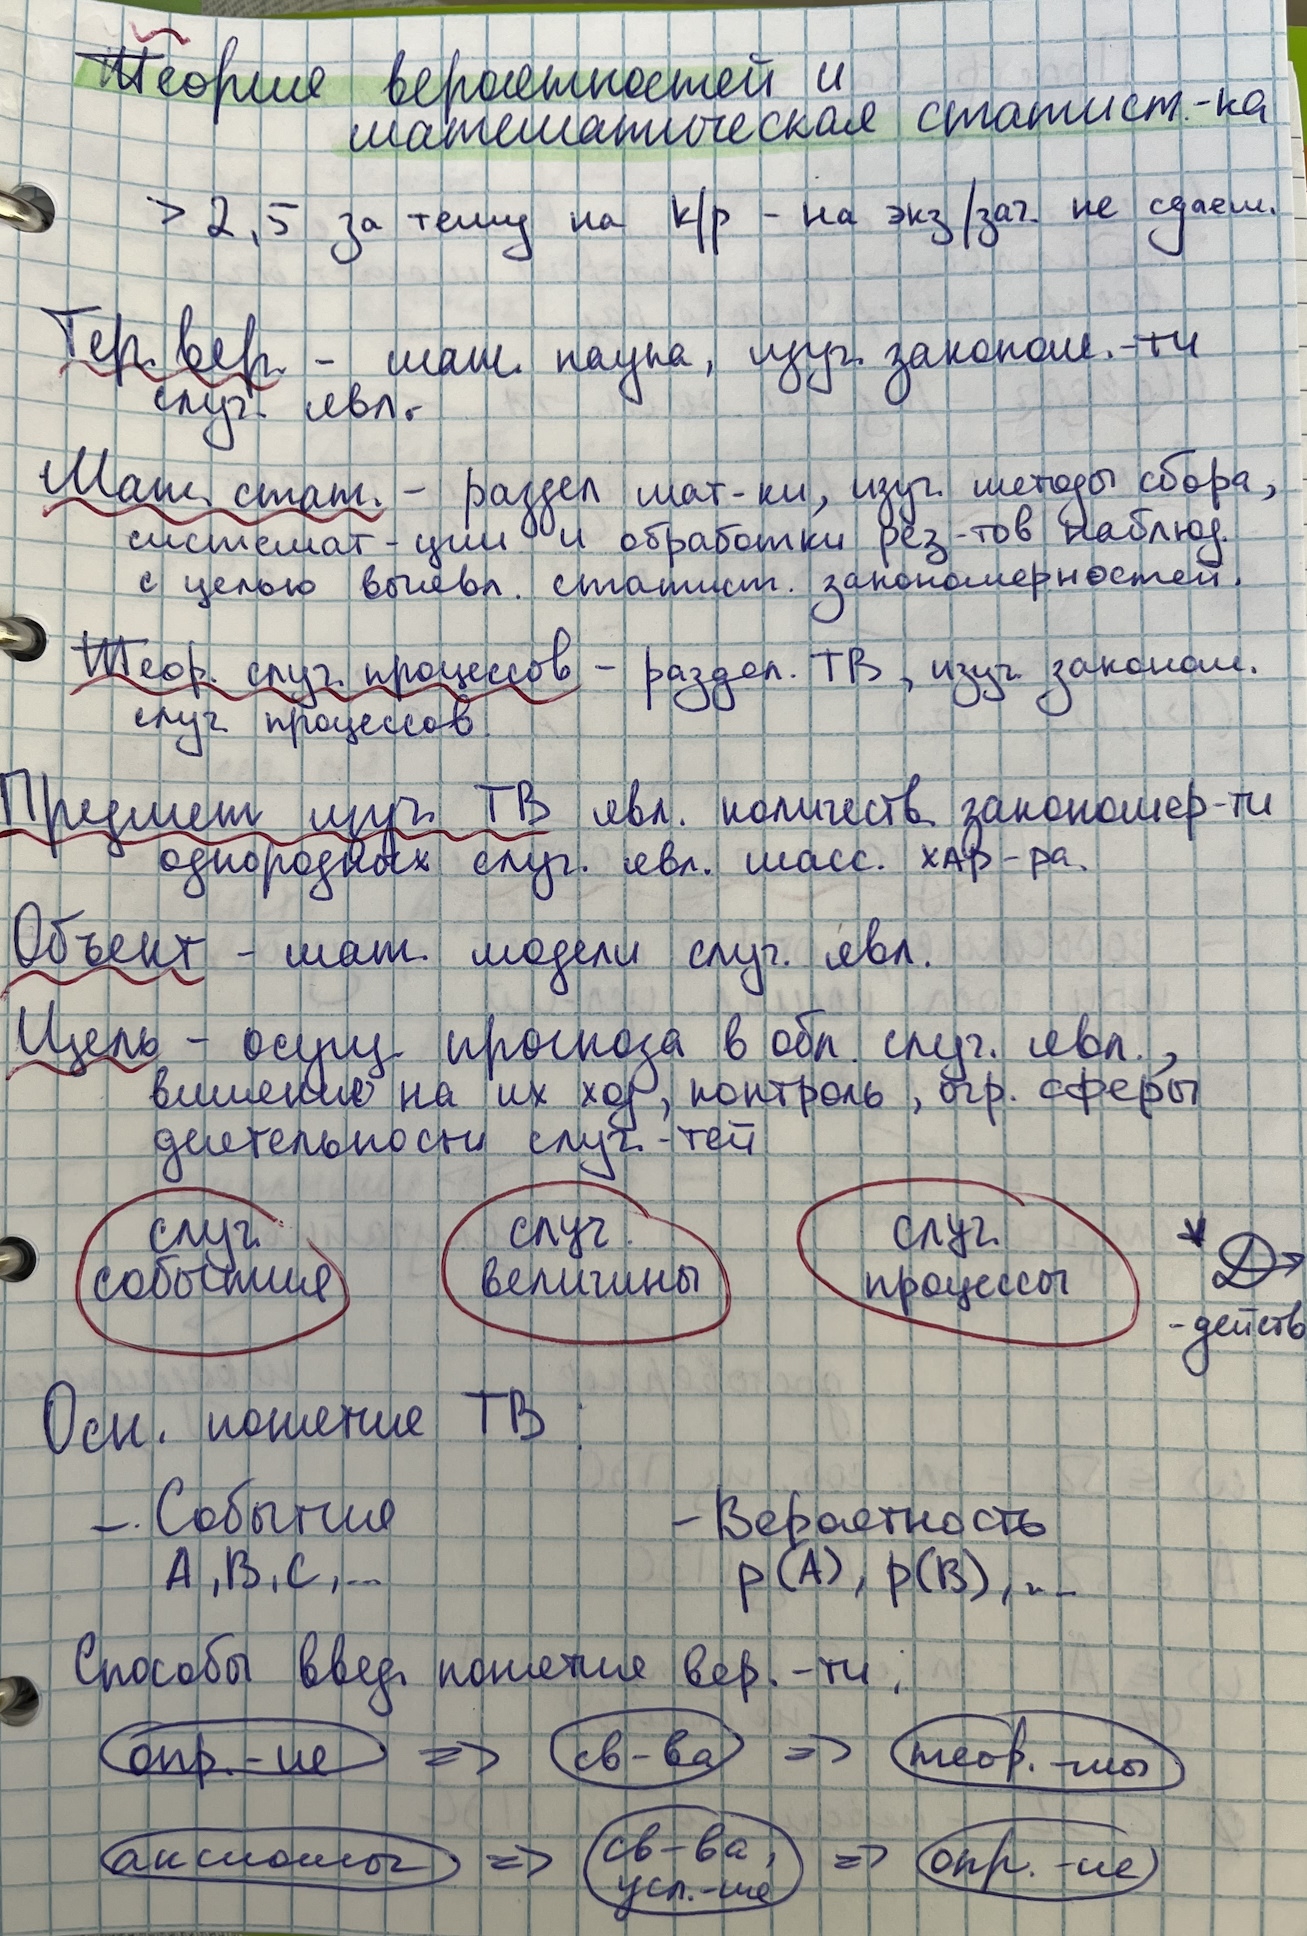 Теория вероятностей и
математическая статист.-ка
> 2,5 за тему на к/р - на экз/зач. не сдаем.
Тер. вер. - мат. наука, изуч. законом.-ти
случ. явл.
Мат. стат. - раздел мат-ки, изуч. методы сбора,
системат-ции и обработки рез-тов наблюд.
с целью выявл. статист. закономерностей.
Теор. случ. процессов - раздел. ТВ, изуч. законом.
случ. процессов.
Предмет изуч. ТВ явл. количеств. закономер-ти
однородных случ. явл. масс. хар-ра.
Объект - мат. модели случ. явл.
Цель - осущ. прогноза в обл. случ. явл.,
влияние на их ход, контроль, огр. сферы
деятельности случ.-тей
случ.
события
случ.
величины
случ.
процессы
Д
- действ
Осн. понятие ТВ:
- События
A, B, C, ...
- Вероятность
p(A), p(B), ...
Способы введ. понятия вер.-ти:
опр.-ие => св-ва => теор.-мы
аксиомы => св-ва, => опр.-ие
усл.-ие